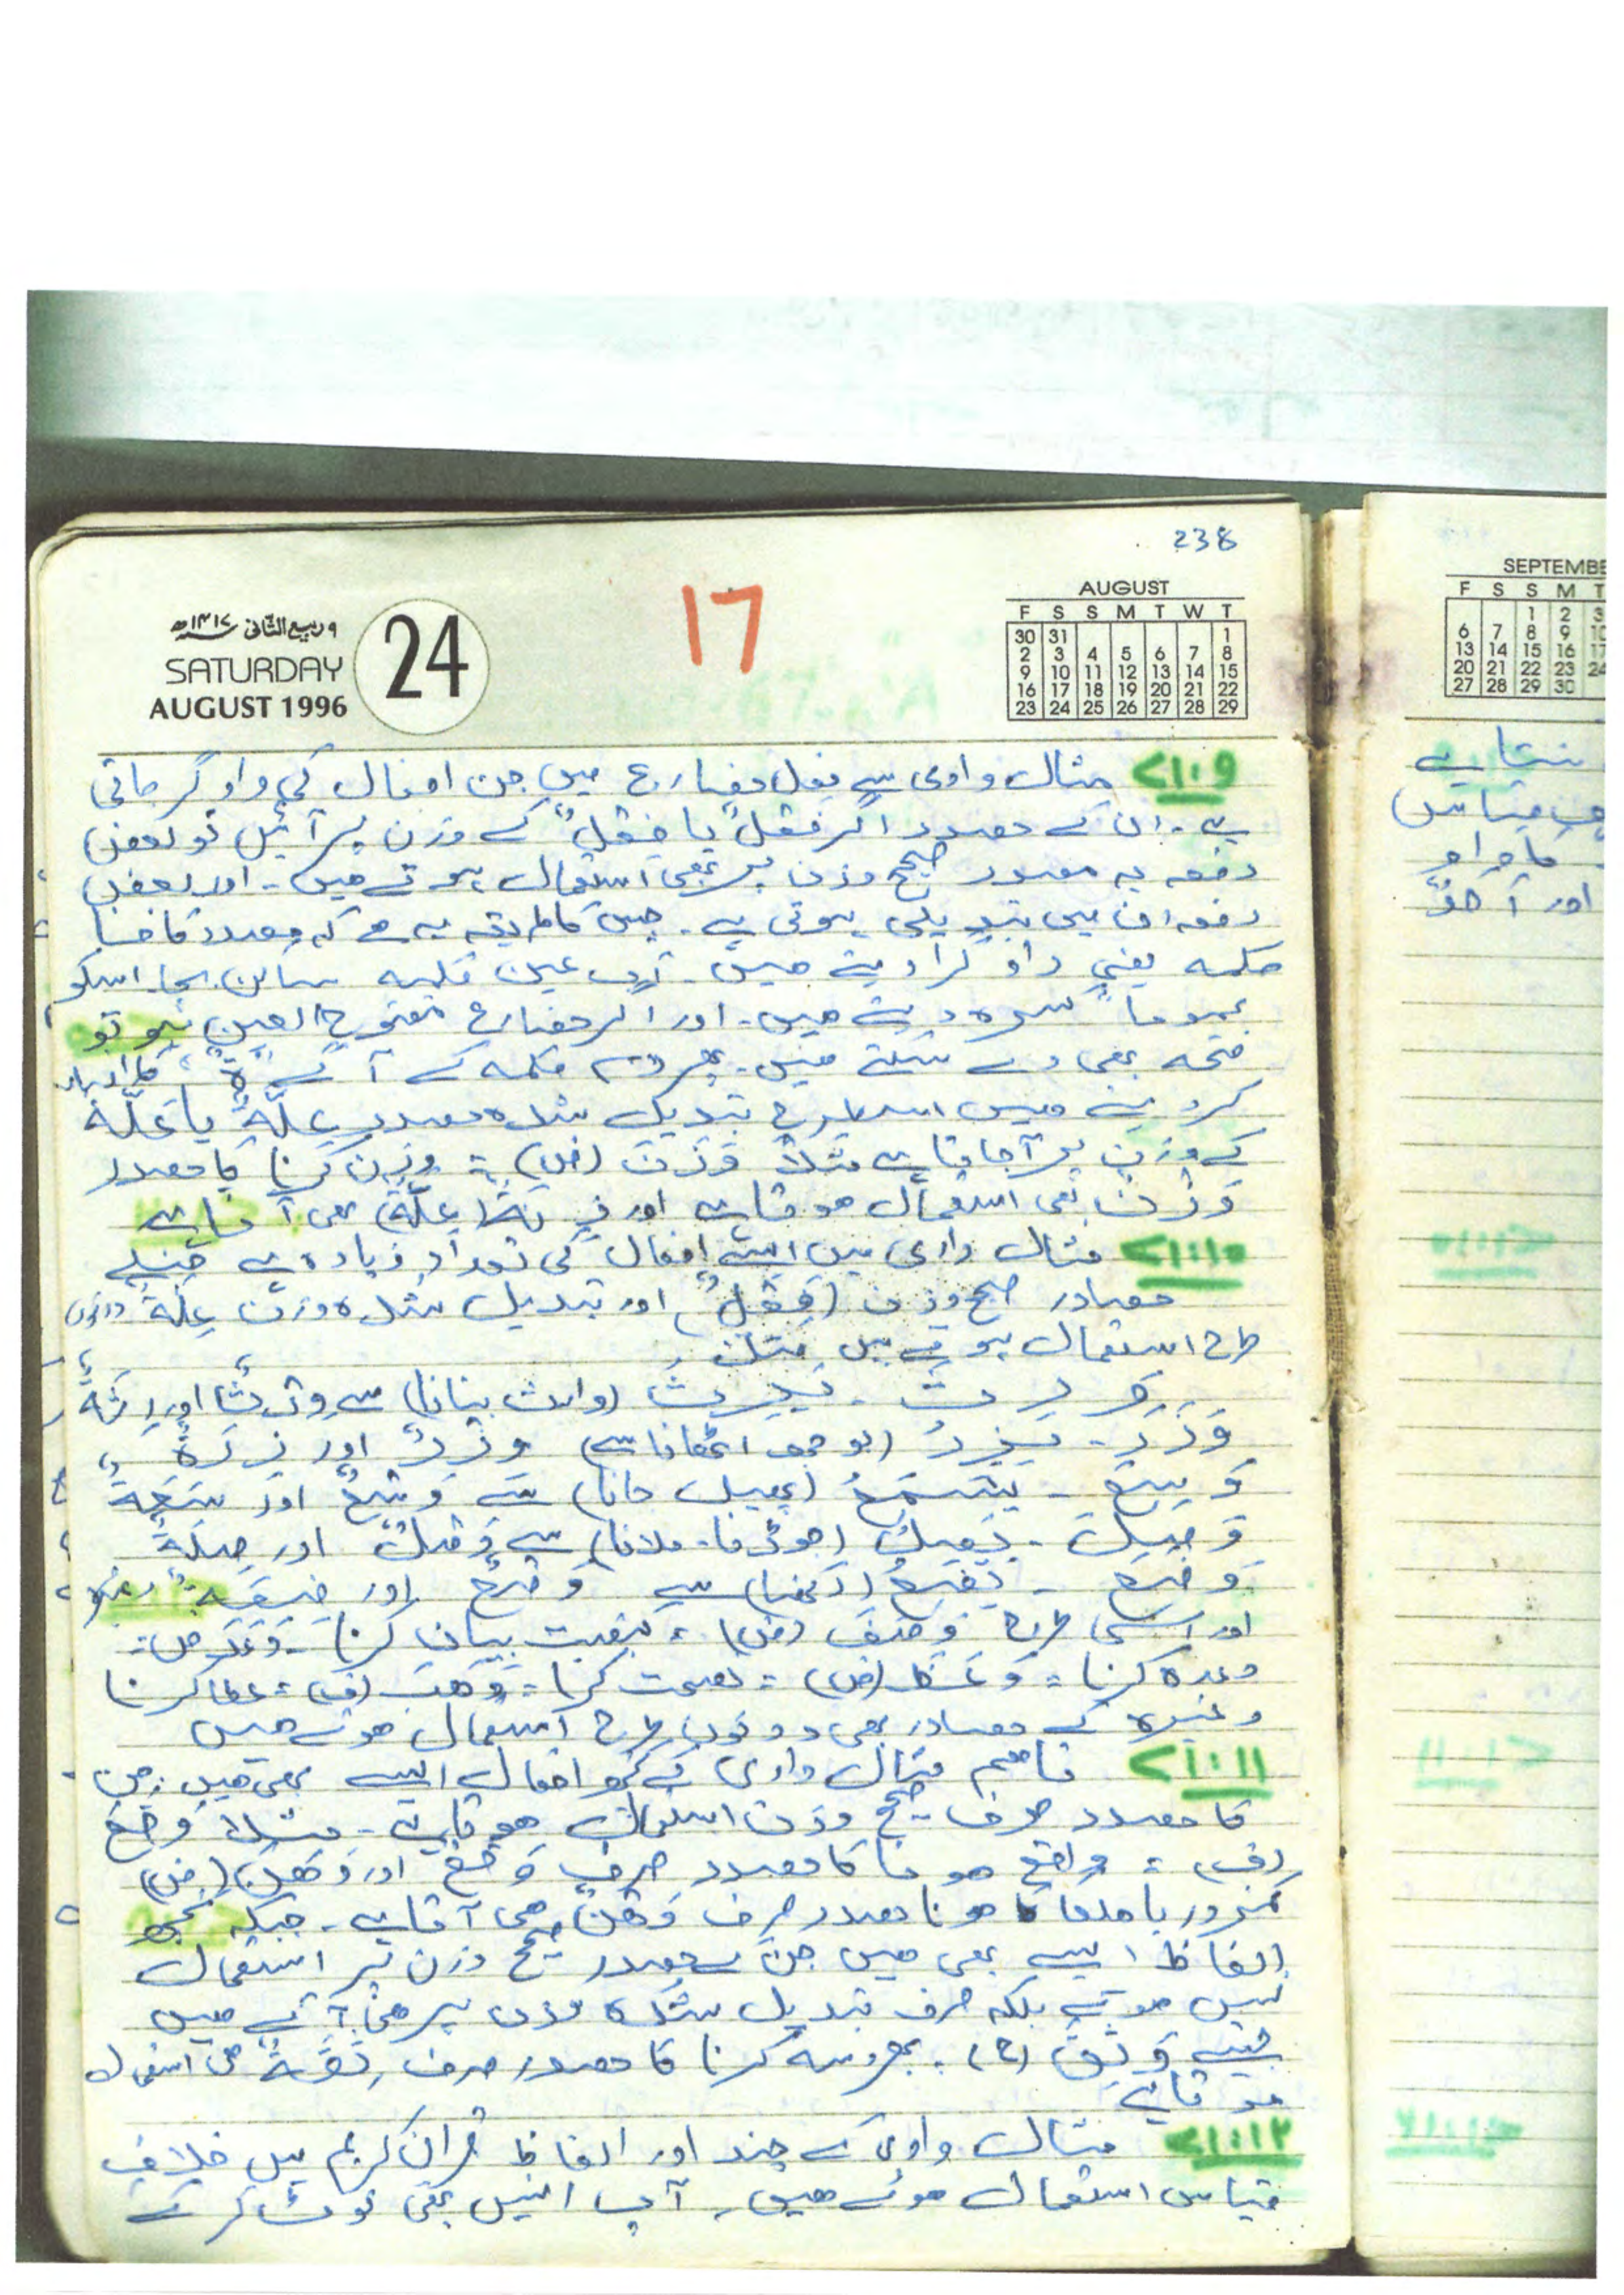 238
17
۹ ربیع الثانی ۱۴۱۷ھ
SATURDAY
AUGUST 1996
24
AUGUST
F S S M T W T
30 31 1
2 3 4 5 6 7 8
9 10 11 12 13 14 15
16 17 18 19 20 21 22
23 24 25 26 27 28 29
۷۱:۰۹ مثال وادی سے فعل مضارع میں جن افعال کی واو گر جاتی
ہے۔ ان کے مصدر اگر فَعْلٌ یا فِعْلٌ کے وزن پر آئیں تو بعض
دفعہ یہ مصدر صحیح وزن پر بھی استعمال ہوتے ہیں۔ اور بعض
دفعہ ان میں تبدیلی ہوتی ہے۔ جس کا طریقہ یہ ہے کہ مصدر کا فا
کلمہ یعنی واو گرا دیتے ہیں۔ اب عین کلمہ ساکن بچا۔ اسکو
عموماً کسرہ دیتے ہیں۔ اور اگر مضارع مفتوح العین ہو تو
فتحہ بھی دے سکتے ہیں۔ پھر لام کلمہ کے آگے "ۃ" کا اضافہ
کر دیتے ہیں اسطرح تبدیل شدہ مصدر عِلَةٌ یا عَلَةٌ
کے وزن پر آ جاتا ہے مثلاً وَزَنَ (ض) = وزن کرنا کا مصدر
وَزْنٌ بھی استعمال ہوتا ہے اور زِنَةٌ (عِلَةٌ) بھی آتا ہے
۷۱:۱۰ مثال وادی میں ایسے افعال کی تعداد زیادہ ہے جنکے
مصادر صحیح وزن (فَعْلٌ) اور تبدیل شدہ وزن عِلَةٌ دونوں
طرح استعمال ہوتے ہیں مثلاً
وَرِثَ - یَرِثُ (وارث بنانا) سے وِرْثًا اور رِثَةٌ
وَزَرَ - یَزِرُ (بوجھ اٹھانا سے) وِزْرٌ اور زِرَةٌ
وَسِعَ - یَسَعُ (پھیل جانا) سے وَسْعٌ اور سَعَةٌ
وَصَلَ - یَصِلُ (جوڑنا۔ ملانا) سے وَصْلٌ اور صِلَةٌ
وَضَعَ - یَضَعُ (رکھنا) سے وَضْعٌ اور ضِعَةٌ وغیرہ
اور اسی طرح وَصَفَ (ض) = کیفیت بیان کرنا۔ وَعَدَ ض =
وعدہ کرنا = وَعَظَ (ض) = نصیحت کرنا = وَهَبَ (ف) = عطا کرنا
وغیرہ کے مصادر بھی دونوں طرح استعمال ہوتے ہیں
۷۱:۱۱ تاہم مثال وادی کے کچھ افعال ایسے بھی ہیں جن
کا مصدر صرف صحیح وزن استعمال ہوتا ہے۔ مثلاً وَقَعَ
(ف) = واقع ہونا کا مصدر صرف وَقْعٌ اور وَهَنَ (ض)
کمزور یا ہلکا ہونا مصدر صرف وَهْنٌ ہی آتا ہے۔ جبکہ کچھ
الفاظ ایسے بھی ہیں جن کے مصدر صحیح وزن پر استعمال
نہیں ہوتے بلکہ صرف تبدیل شدہ وزن پر ہی آتے ہیں
جیسے وَثِقَ (ح) = بھروسہ کرنا کا مصدر صرف ثِقَةٌ ہی استعمال
ہوتا ہے
۷۱:۱۲ مثال وادی کے چند اور الفاظ قرآن کریم میں خلاف
قیاس استعمال ہوئے ہیں۔ آپ انہیں بھی نوٹ کر کے
SEPTEMBE
F S S M T
1 2 3
6 7 8 9 10
13 14 15 16 17
20 21 22 23 24
27 28 29 30
قیاس
اور